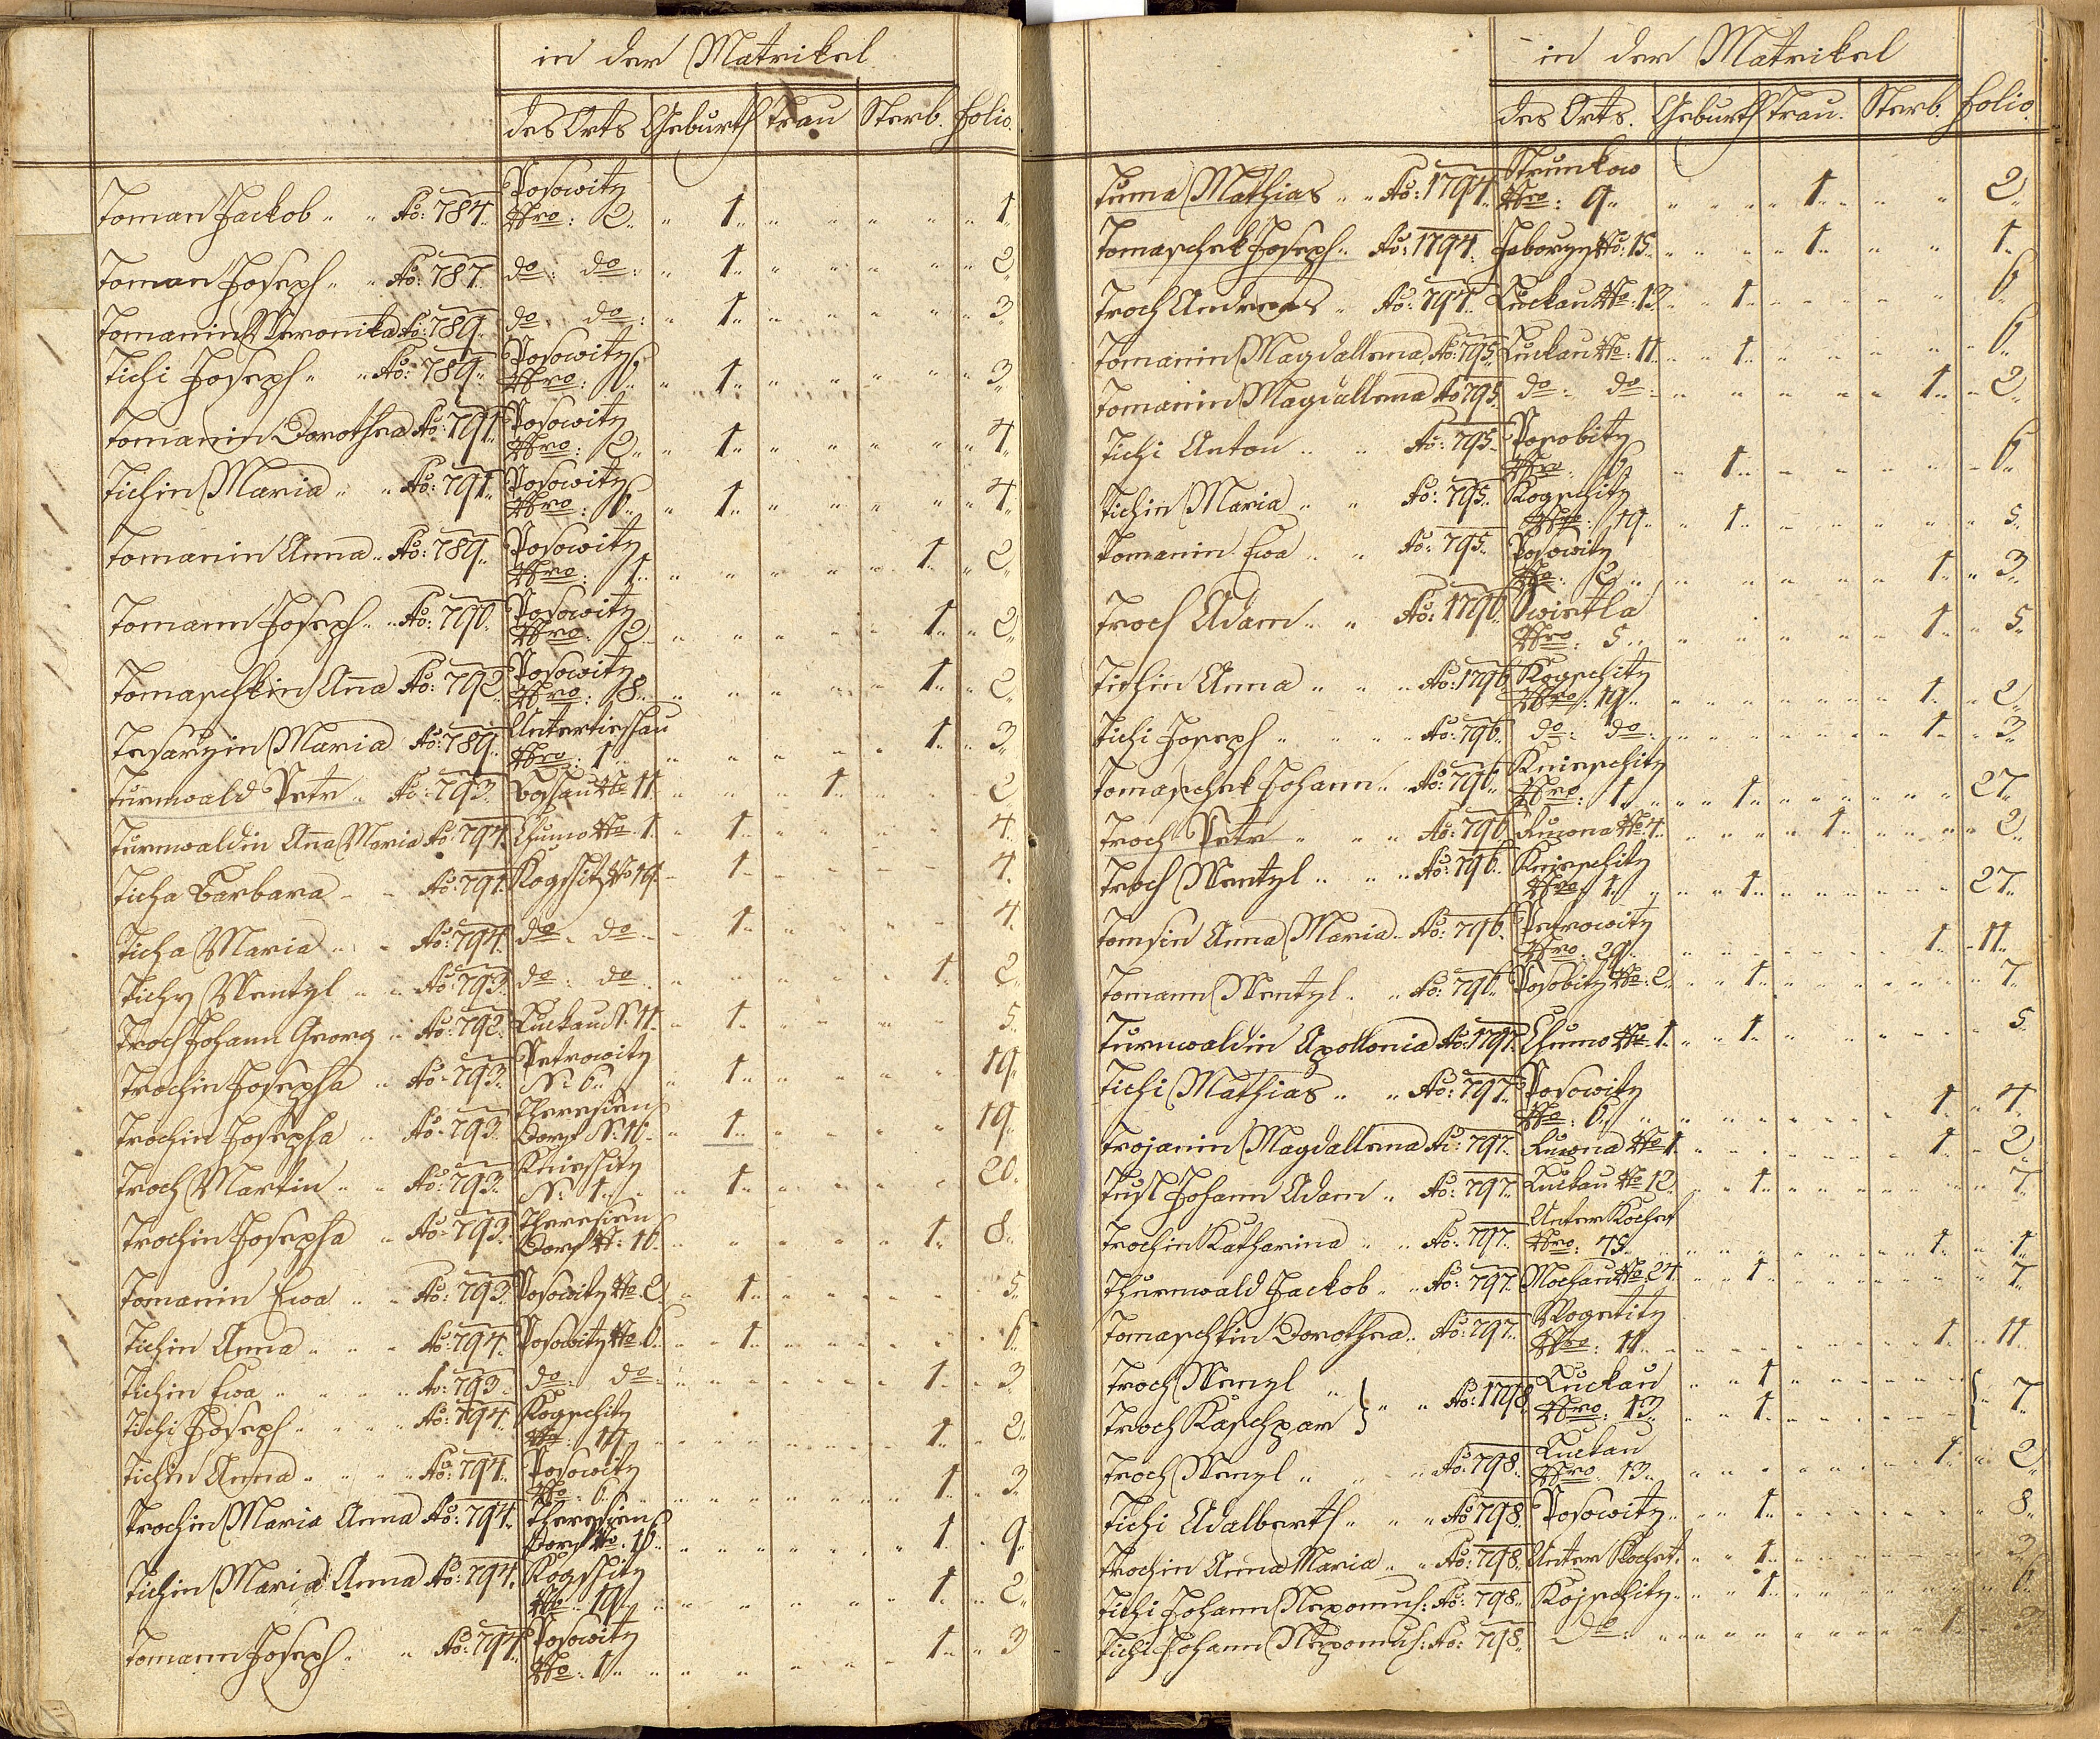 in der Matrikel
des Orts Geburth Trau Sterb. Folio.
Toman Jackob „ „ Ao: 784. Posowitz Nro: 2 „ „ 1 „ „ „ „ 1.
Toman Joseph „ „ Ao: 787. do: do: „ 1 „ „ „ „ 2.
Tomanin Veronika Ao: 789. do: do: „ 1 „ „ „ „ 3.
Tichi Joseph „ „ Ao: 789. Posowitz Nro: 6 „ „ 1 „ „ „ „ 3.
Tomanin Dorothea Ao: 791. Posowitz Nro: 2 „ „ 1 „ „ „ „ 4.
Tichin Maria „ „ Ao: 791. Posowitz Nro: 6 „ „ 1 „ „ „ „ 4.
Tomanin Anna „ Ao: 789. Posowitz Nro: 1 „ „ „ „ „ 1 „ 2.
Tomann Joseph „ „ Ao: 790. Posowitz Nro: 2 „ „ „ „ „ 1 „ 2.
Tomaschkin Ana Ao: 792. Posowitz Nro: 8 „ „ „ „ „ 1 „ 2.
Tesarzin Maria Ao: 789. Untertieschau Nro: 1 „ „ „ „ „ 1 „ 3.
Turnwald Petr „ Ao: 793. Boschau No 11 „ „ „ 1 „ „ 2.
Turnwaldin Ana Maria Ao: 794. Chumo No. 1. „ 1 „ „ „ „ 4.
Ticha Barbara „ „ Ao: 791. Kogschitz No 19. „ 1 „ „ „ „ 4.
Ticha Maria „ „ Ao: 794. do „ do „ „ 1 „ „ „ „ 4.
Tichy Wentzl „ „ Ao: 793. do: do „ „ „ „ „ 1. 2.
Troch Johann Georg „ Ao: 792. Luckau N: 11. „ 1 „ „ „ „ 5.
Trochin Josepha „ Ao: 793. Petrowitz N: 6 „ „ 1 „ „ „ „ 19.
Trochin Josepha „ Ao: 793. Theresien Dorf N: 16. „ 1 „ „ „ „ 19.
Troch Martin „ „ Ao: 793. Knieschitz N: 1 „ „ 1 „ „ „ „ 20.
Trochin Josepha „ Ao: 793. Theresien Dorf N: 16. „ „ „ „ 1. 8.
Tomanin Ewa „ „ Ao: 793. Posowitz No. 2. „ 1 „ „ „ „ 5.
Tichin Anna „ „ „ Ao: 794. Posowitz No. 6. „ „ 1 „ „ „ „ 6.
Tichin Ewa „ „ „ Ao: 793. do: do: „ „ „ „ „ 1 „ 3.
Tichi Joseph „ „ „ Ao: 794. Kogschitz No: 19 „ „ „ „ „ 1 „ 2.
Tichin Anna „ „ „ Ao: 794. Posowitz No: 6 „ „ „ „ „ 1 „ 3.
Trochin Maria Anna Ao: 794. Theresien Dorf No. 16 „ „ „ „ „ 1 „ 9.
Tichin Maria Anna Ao: 794. Kogschitz No: 19 „ „ „ „ „ 1 „ 2.
Tomann Joseph „ „ Ao: 794. Posowitz No: 1 „ „ „ „ „ 1 „ 3
in der Matrikel
des Orts. Geburth Trau. Sterb. Folio.
Tuma Mathias „ „ Ao: 1794. Strunkow Nro: 9 „ „ „ „ 1 „ „ „ 2.
Tomaschek Joseph „ Ao: 1794. Jaborzy No: 15 „ „ „ „ 1 „ „ „ 1.
Troch Andreas „ Ao: 794. Luckau No: 13. „ „ 1 „ „ „ „ 6.
Tomanin Magdallena Ao: 795. Luckau No: 11. „ „ 1 „ „ „ „ 6.
Tomanin Magdallena Ao 795. do: do: „ „ „ „ „ 1 „ 2.
Tichi Anton „ „ Ao: 795. Posobitz Nro: 6 „ „ 1 „ „ „ „ 6.
Tichin Maria „ „ Ao: 795. Kogschitz Nro: 19 „ „ 1 „ „ „ „ 5.
Tomanin Ewa „ „ Ao: 795. Posowitz No: 2 „ „ „ „ „ 1 „ 3.
Troch Adam „ „ Ao: 1796. Swietla Nro: 5 „ „ „ „ „ 1 „ 5.
Tichin Anna „ „ „ Ao: 1796. Kogschitz Nro: 19 „ „ „ „ „ 1 „ 2.
Tichi Joseph „ „ „ „ Ao: 796. do: do: „ „ „ „ „ 1 „ 3.
Tomaschek Johann „ „ Ao: 796. Knieschitz Nro: 1 „ „ „ 1 „ „ „ „ 27.
Troch Petr „ „ „ Ao: 796. Ruwna No. 4. „ „ „ „ 1 „ „ „ 2.
Troch Wentzl „ „ „ Ao: 796. Knieschitz Nro: 1. „ „ „ 1 „ „ „ „ 27.
Tomsin Anna Maria „ Ao: 796. Petrowitz Nro: 29 „ „ „ „ „ 1 „ 11.
Tomann Wentzl „ „ Ao: 796. Posobitz No: 2. „ „ 1 „ „ „ „ 7.
Turnwaldin Apollonia Ao: 1797. Chumo No. 1. „ „ 1 „ „ „ „ 5.
Tichi Mathias „ „ Ao: 797. Posowitz No: 6 „ „ „ „ „ 1 „ 4.
Trojanin Magdallena Ao: 797. Ruwna No 1. „ „ „ „ „ 1 „ 2.
Tusl Johann Adam „ Ao: 797. Luckau No 12. „ „ 1 „ „ „ „ 7.
Trochin Katharina „ „ Ao: 797. Unter Kochet Nro: 75. „ „ „ „ „ 1 „ 1.
Thurnwald Jackob „ „ Ao: 797. Mochau No. 24. „ „ 1 „ „ „ „ 7.
Tomaschkin Dorothea „ Ao: 797. Wogetitz Nro: 11 „ „ „ „ „ 1 „ 11.
Troch Wenzl „ Luckau „ „ 1 „ „ „ „
Troch Kaschpar } „ „ Ao: 1798. Nro: 13 „ „ 1 „ „ „ „ } 7.
Troch Wenzl „ „ „ Ao: 798. Luckau Nro: 13 „ „ „ „ „ 1 „ 2.
Tichi Adalberth „ „ „ Ao 798. Posowitz „ „ „ 1 „ „ „ „ 8.
Trochin Anna Maria „ „ Ao: 798. Unter Kochet. „ „ 1 „ „ „ „ 3.
Tichi Johann Nepomuk: Ao: 798. Kojschitz „ „ „ 1 „ „ „ „ 6.
Tichi Johann Nepomuk: Ao: 798. Do: „ „ „ „ „ 1 „ 3.